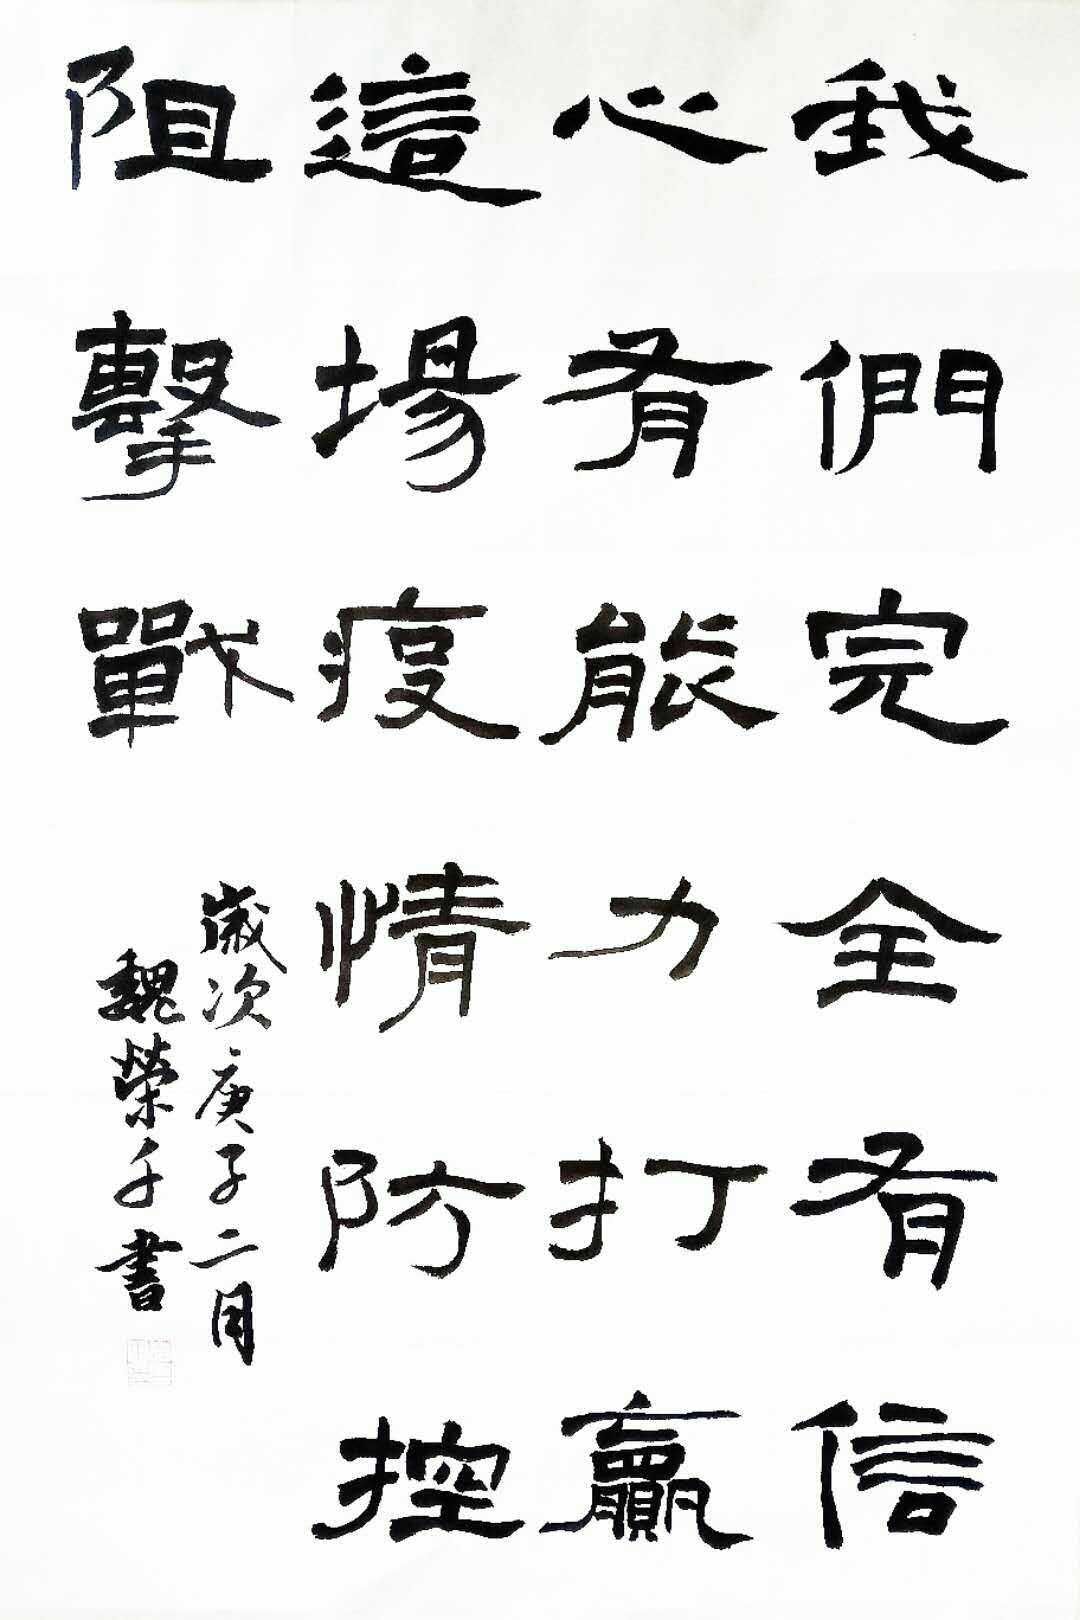 我們完全有信
心有能力打贏
這場疫情防控
阻擊戰
歲次庚子二月
魏榮千書